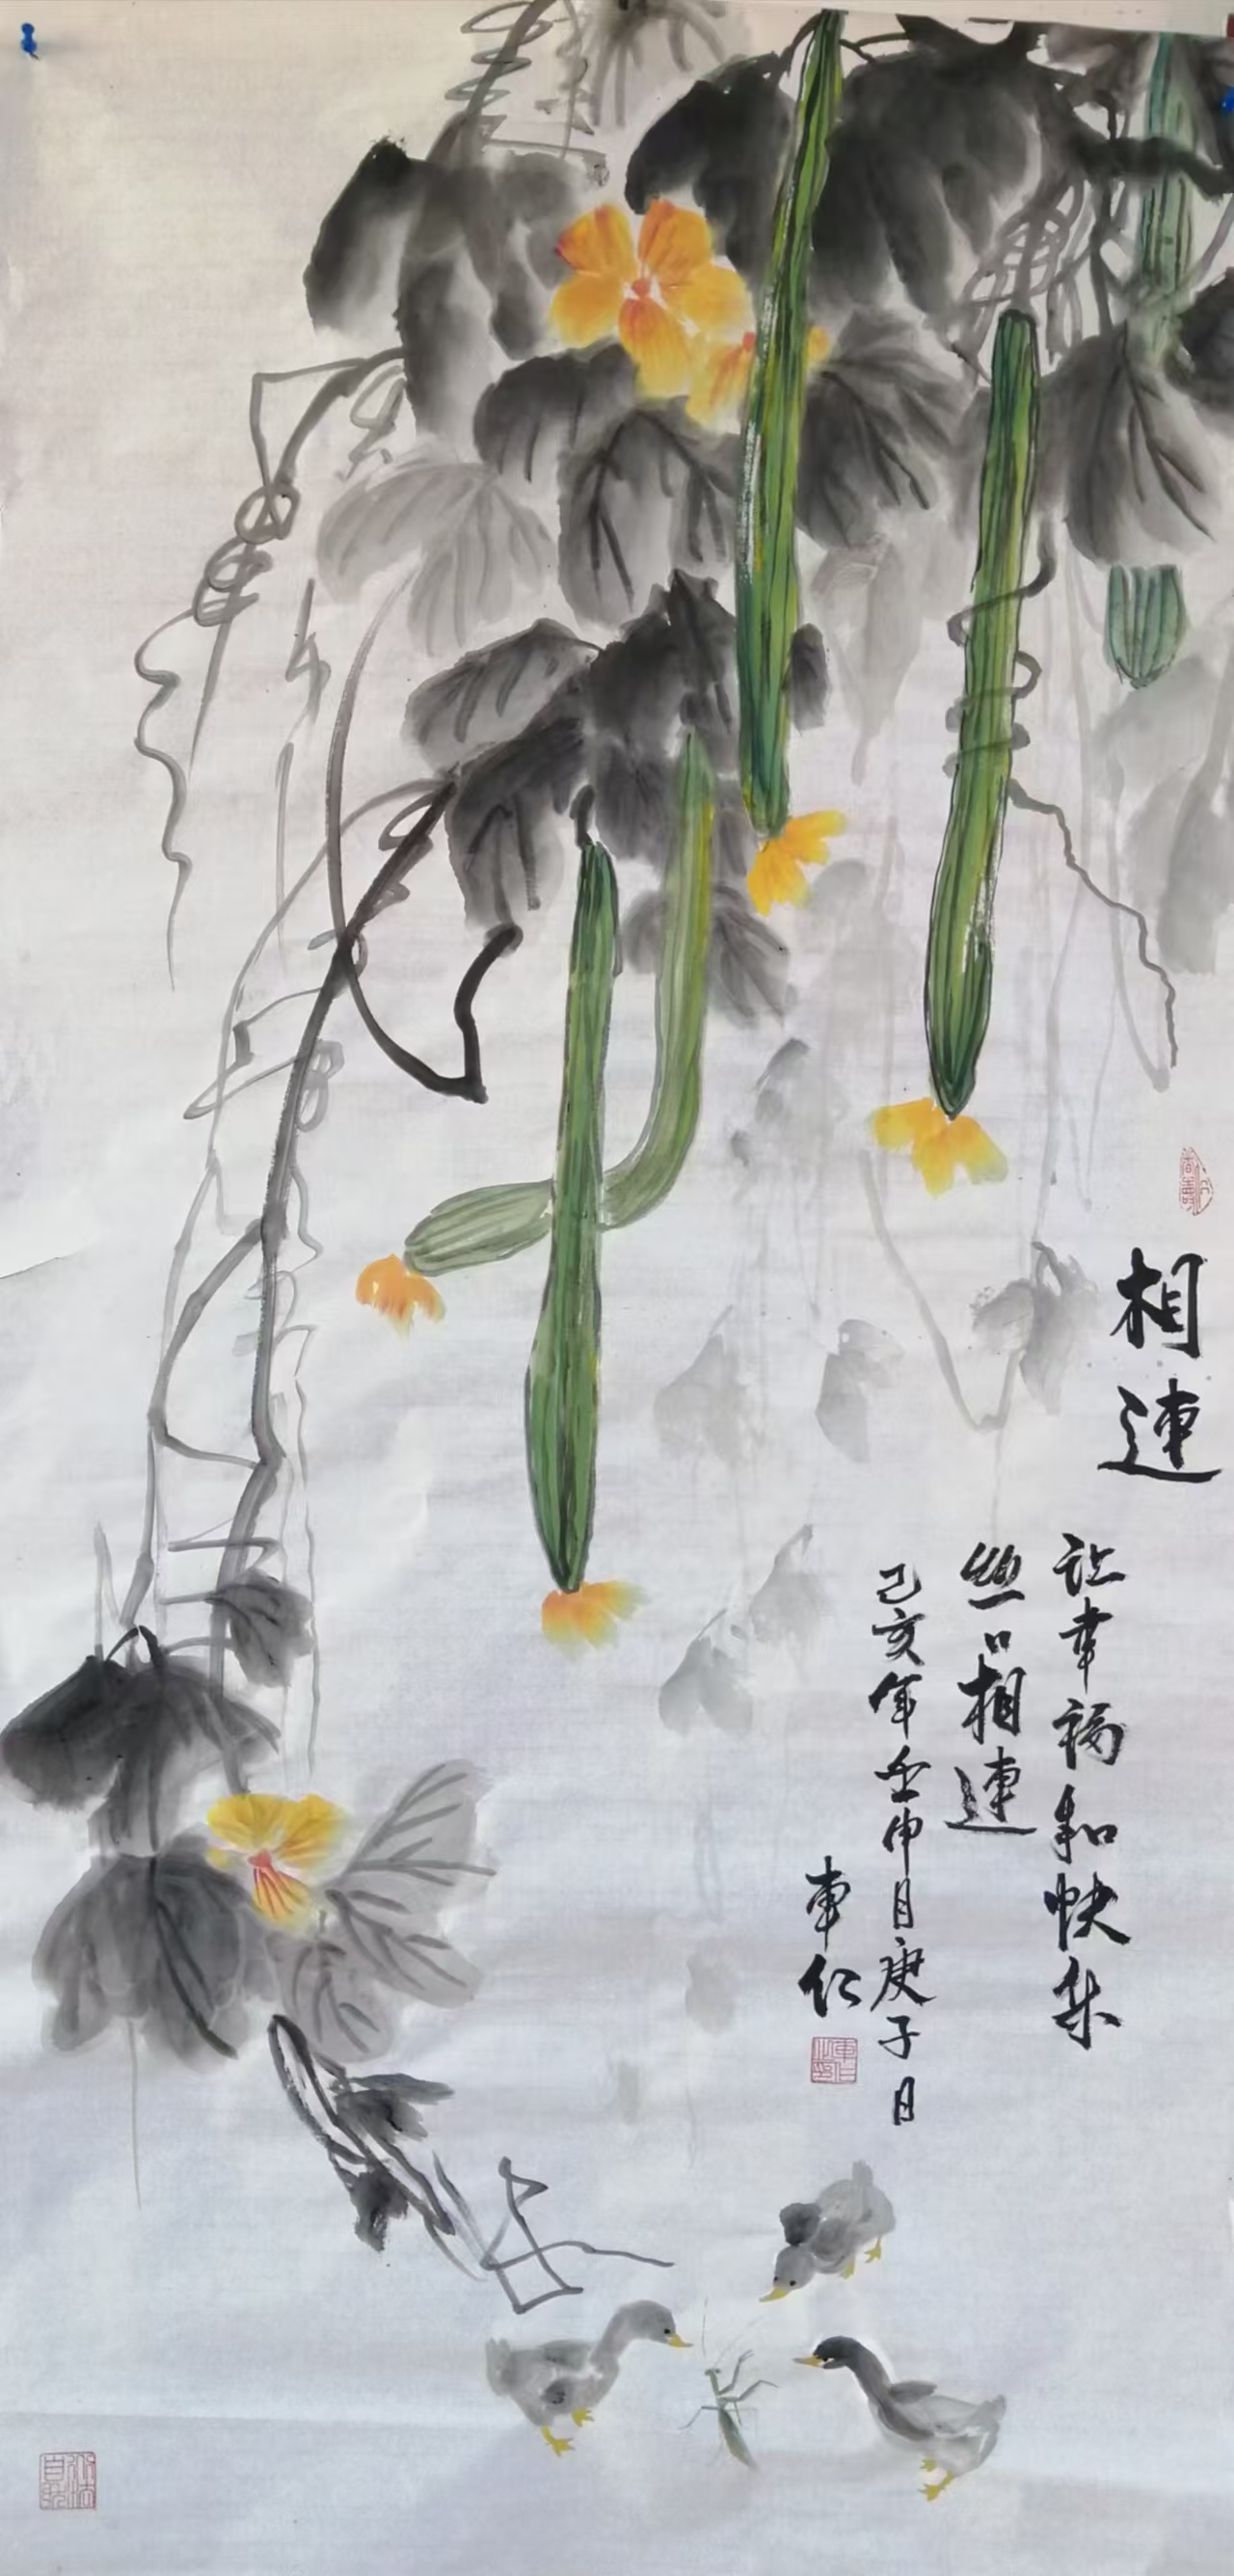 相連
让幸福和快乐
丝丝相連
己亥年壬申月庚子日
車仁